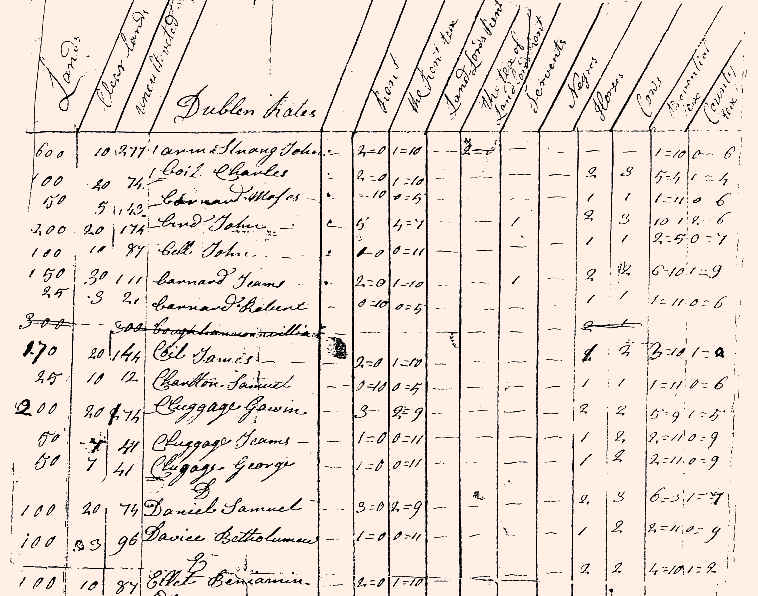 Lands Clear land uncultivated Dublen Rates Rent the Rent tax Land Lords Rent the tax of Land Servents Negros Horses Cows tax County tax
600 10 277 arm Strong John 2=0 1=10 1=10 0=6
100 20 74 Coil Charles 2=0 1=10 2 3 5=4 1=4
50 5 143 barnard Moses =10 0=5 1 1 1=11 0=6
200 20 174 John 5 4=7 1 2 3 10 1 2=6
100 10 87 bell John 1=0 0=11 1 1 2=5 0=7
150 30 111 barnard Teams 2=0 1=10 1 2 6=10 1=9
25 3 21 barnard Robert 0=10 0=5 1 1 1=11 0=6
300 300 2 1
170 20 144 Coil James 2=0 1=10 2 3=10 1=0
25 10 12 Charlton Samuel 0=10 0=5 1 1 1=11 0=6
200 20 174 Cluggage Gawin 3 2=9 2 2 5=9 1=5
50 7 41 Cluggage Teams 1=0 0=11 1 2 2=11 0=9
50 7 41 Clugage George 1=0 0=11 1 2 2=11 0=9
D
100 20 74 Daniel Samuel 3=0 2=9 2 3 6=5 1=7
100 33 96 Davice Betholumew 1=0 0=11 1 2 2=11 0=9
E
100 10 87 Ellet Benjamin 2=0 1=10 2 2 4=10 1=2